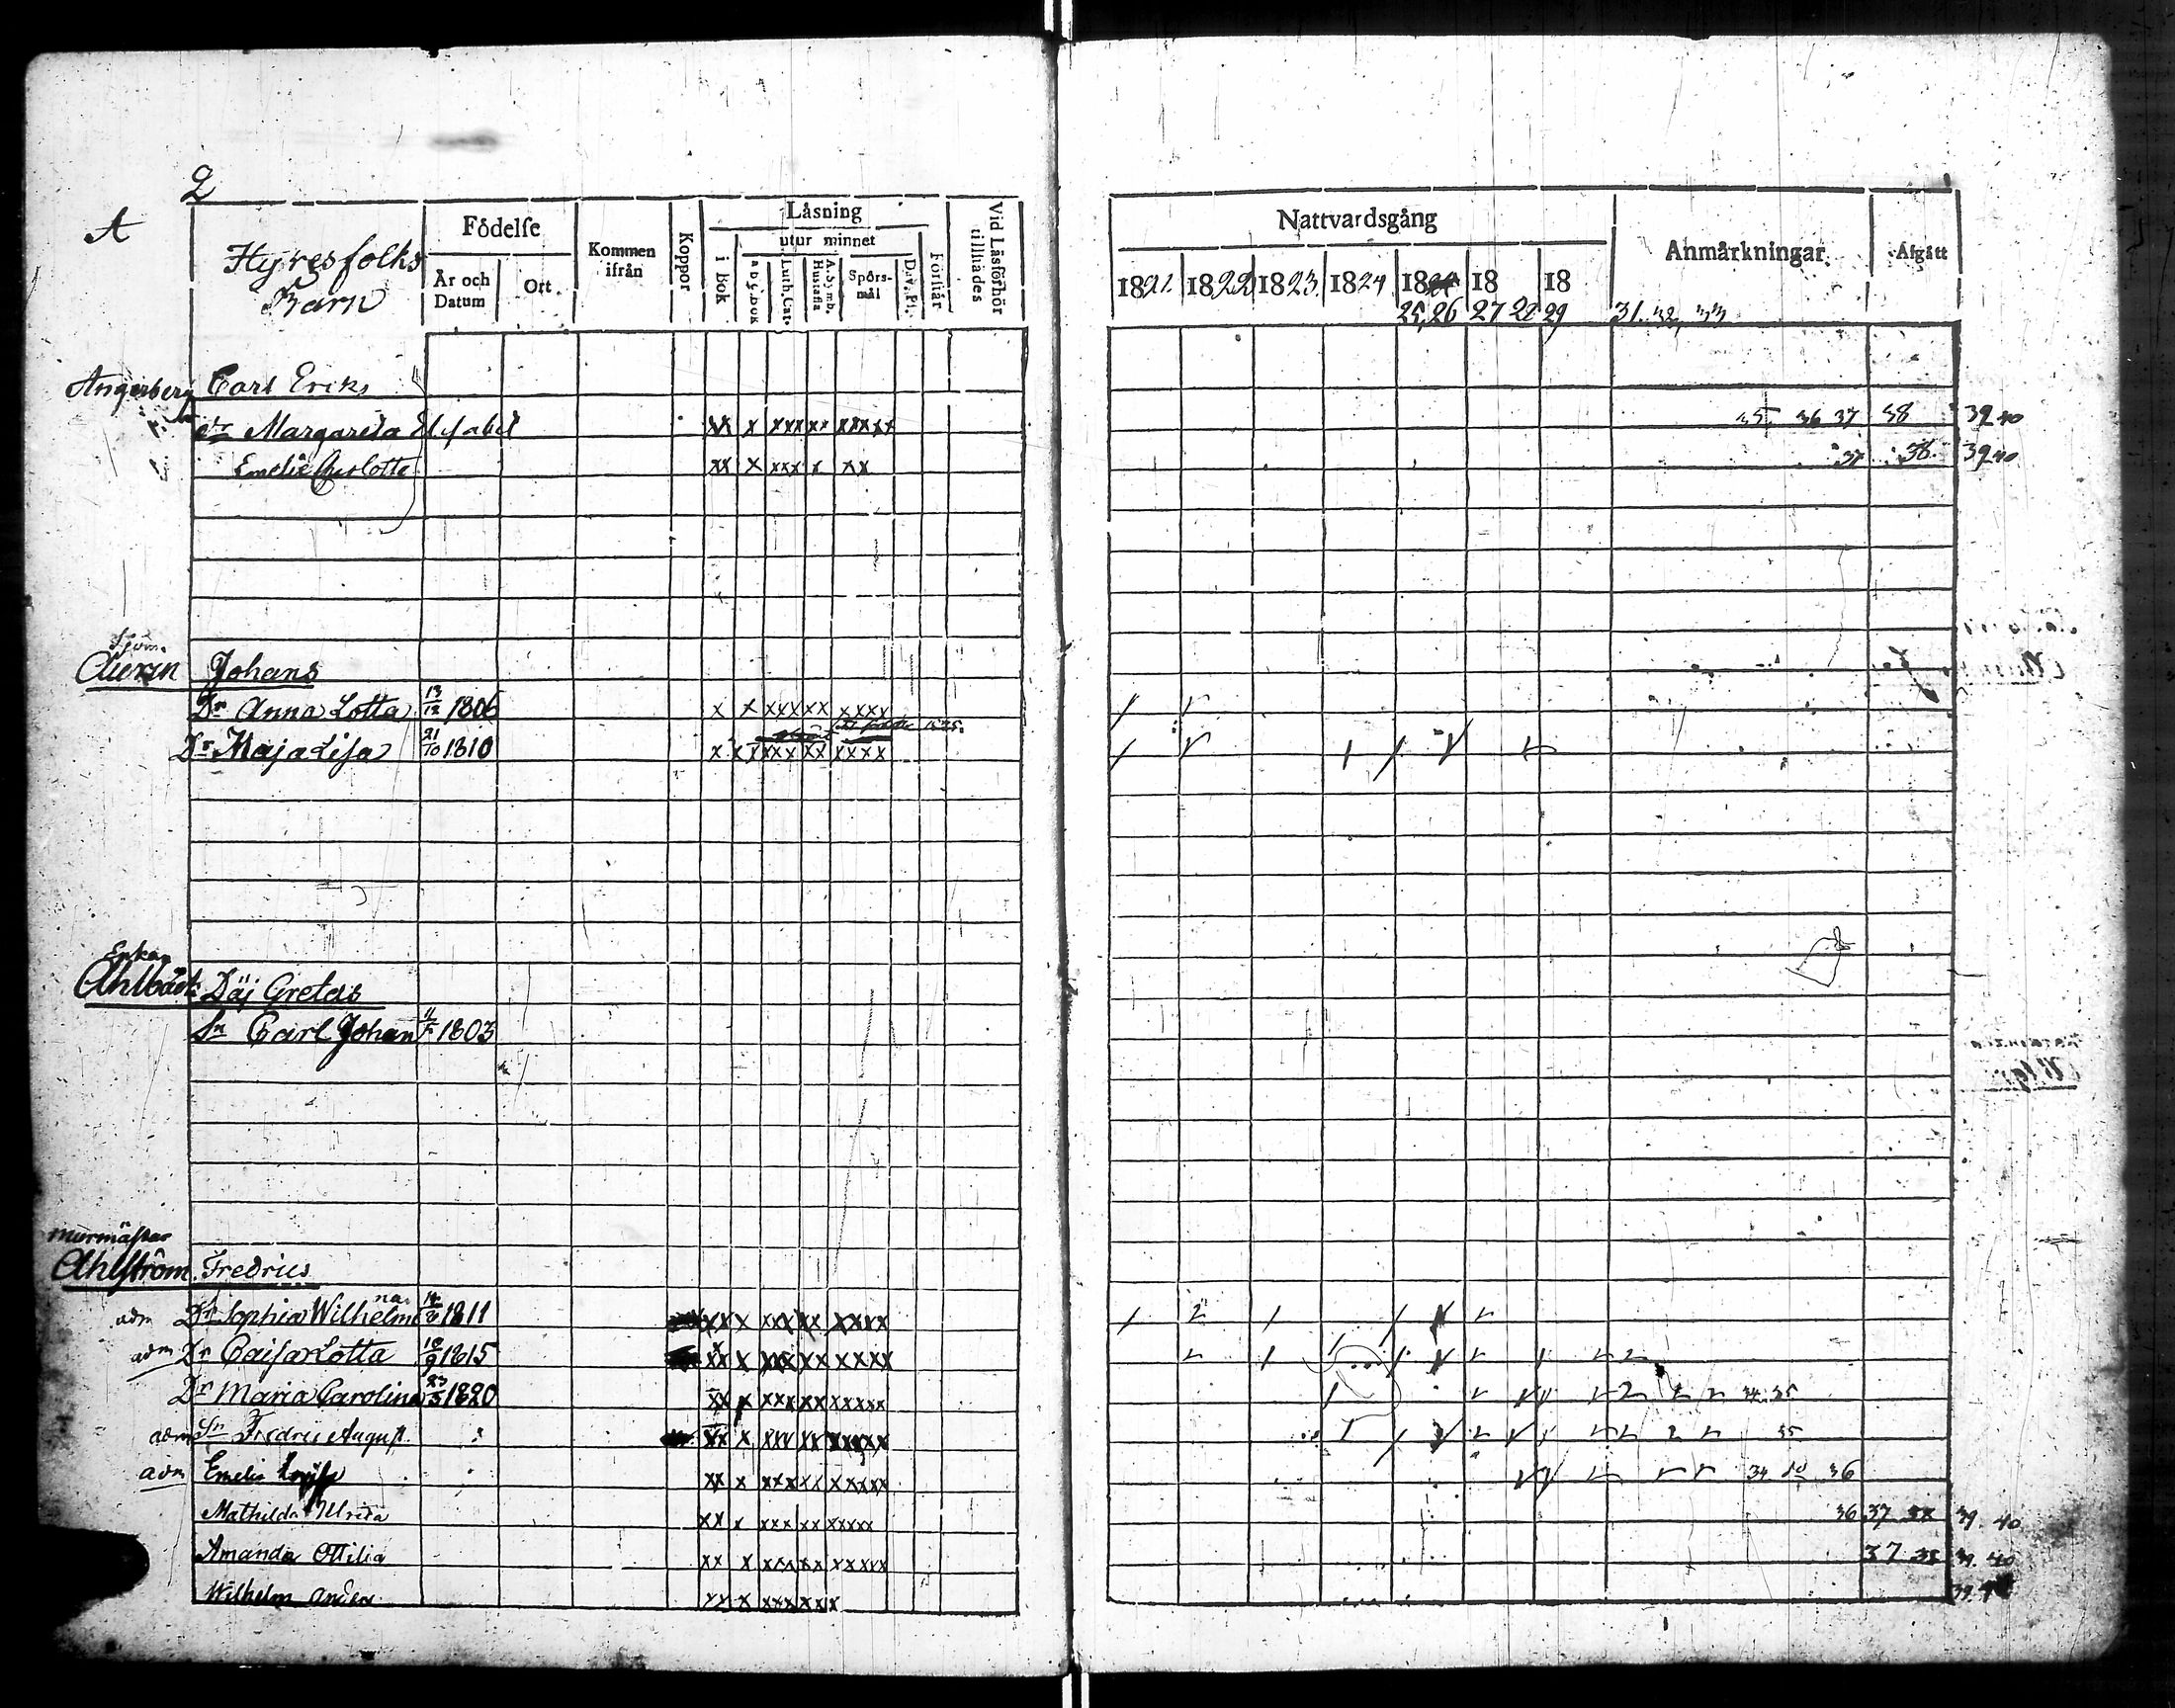 2
A
Hyresfolks
Barn
Födelse
År och
Datum
Ort
Kommen
ifrån
Koppor
Läsning
i bok
utur minnet
a b c bok
Luth. Cat.
A. Symb.
Hustafla
Spörs-
mål
Dav. Ps.
Förstår
Vid Läsförhör
tillstädes
Nattvardsgång
1821. 1822 1823. 1824 18 18 18
25, 26 27 28 29 31. 32, 33
Anmärkningar
Afgått
Angerberg Carl Eriks
dr Margareta Elisabet xx x xxx xx xxxxx 35 36 37 38 39 40
Emelie Charlotte xx x xxx x xx 37 38. 39 40
Sjöm.
Johans
Dr Anna Lotta 13/12 1806 x x xxx xx xxxx
Dr Maja Lisa 21/10 1810 x x xxx xx xxxx
Enkan
Däj Gretas
Sn Carl Johan 1803
murmästar
Ahlström Fredrics
adm Dr Sophia Wilhelmina 1811 xx x xxx xx xxxx
adm Dr Caisa Lotta 18/9 1815 xx x xxx xx xxxx
Dr Maria Carolina 23/5 1820 xx x xxx xx xxxxx 34. 35
adm Sn Fredric August xx x xxx xx xxxxx 35
adm Emelie Lovisa xx x xxx xx xxxxx 34 36
Mathilda Ulrica xx x xxx xx xxxxx 36 37 38 39. 40
Amanda Ottilia xx x xxx xx xxxxx 37 38 39. 40
Wilhelm Anders xx x xxx xx x 39.